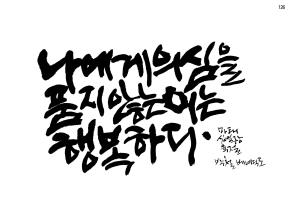 126
나에게 의심을
품지 않는 이는
행복하다.
마태
십일장
육절